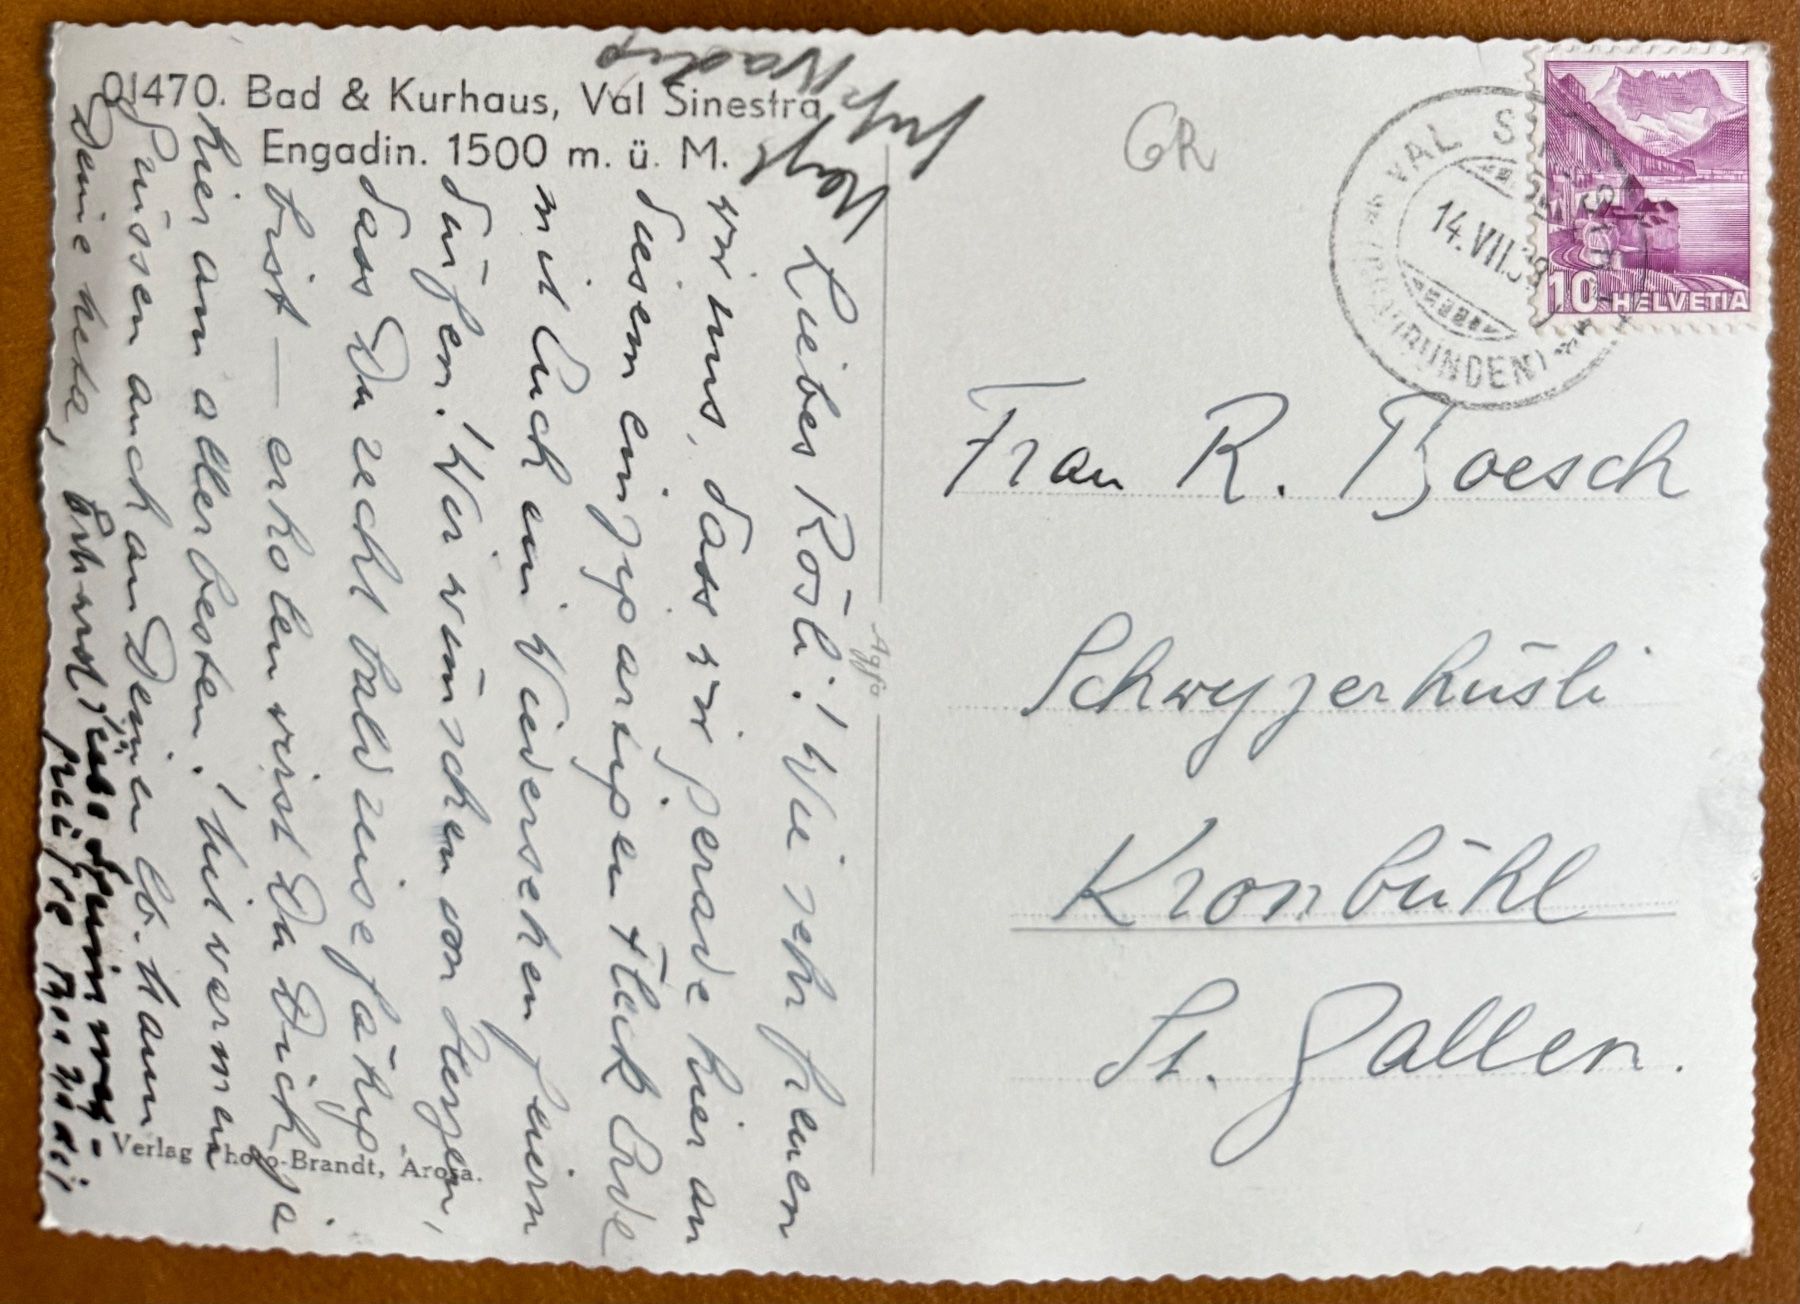 01470. Bad & Kurhaus, Val Sinestra,
Engadin. 1500 m. ü. M.
Liebes Rösli! Wie sehr freuen
wir uns, dass wir gerade hier an
diesem einzigartigen Fleck Erde
mit Euch ein Wiedersehen feiern
dürfen! Wir wünschen von Herzen,
dass Du recht bald reisefähig
bist — erholen wirst Du Dich ja
hier am allerbesten! Mit warmen
Grüssen auch an Deinen lb. Mann
Deine
GR
VAL SINESTRA
14.VII.
(GRAUBÜNDEN)
10 HELVETIA
Frau R. Boesch
Schwyzerhüsli
Kronbühl
St. Gallen.
Agfa
Verlag Photo-Brandt, Arosa.